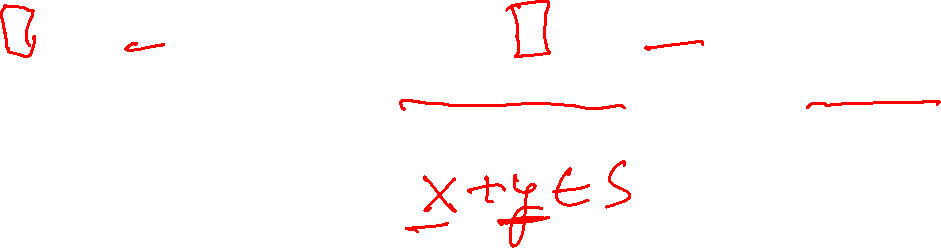 x + y ∈ S